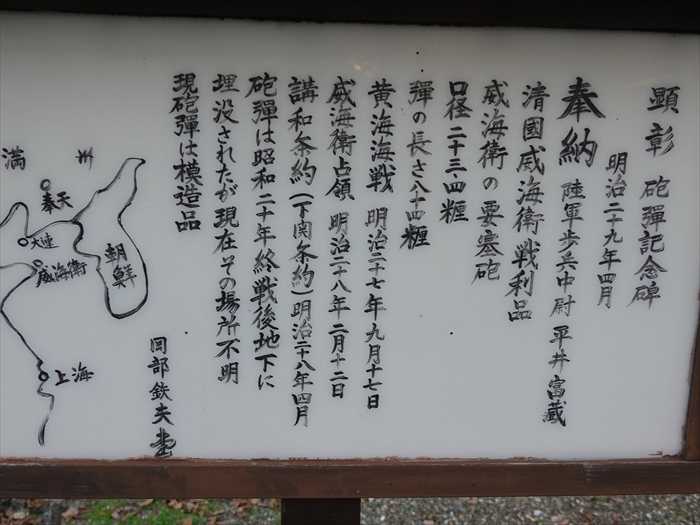 顕彰 砲彈記念碑
明治二十九年四月
奉納 陸軍歩兵中尉 平井富蔵
清國威海衛戦利品
威海衛の要塞砲
口径二十三・四糎
彈の長さ八十四糎
黄海海戦 明治二十七年九月十七日
威海衛占領 明治二十八年二月十二日
講和条約(下関条約)明治二十八年四月
砲彈は昭和二十年終戦後地下に
埋没されたが現在その場所不明
現砲彈は模造品
岡部鉄夫書
満州
奉天
大連
威海衛
朝鮮
上海